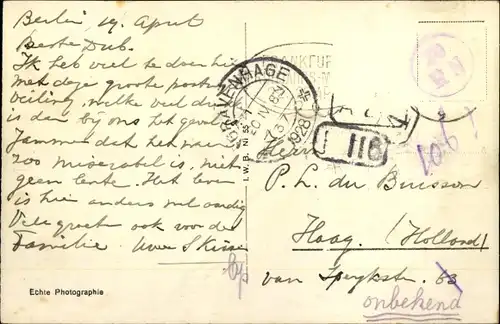 Berlin, 19 April
Beste Dub.
Ik heb veel te doen hier
met deze groote post
veiling, welke veel
is dan bij ons het geval
Jammer dat het weer
zoo miserabel is, niet
geen lente. Het leven
is hier anders wel aardig
Vele groeten ook voor de
Familie. Uwe
Echte Photographie
I.W.B. Nr. 55
'S GRAVENHAGE
20 IV
1928
118
106
Herrn
P. L. du Buisson
Haag. (Holland)
van Speykstr. 63
onbekend